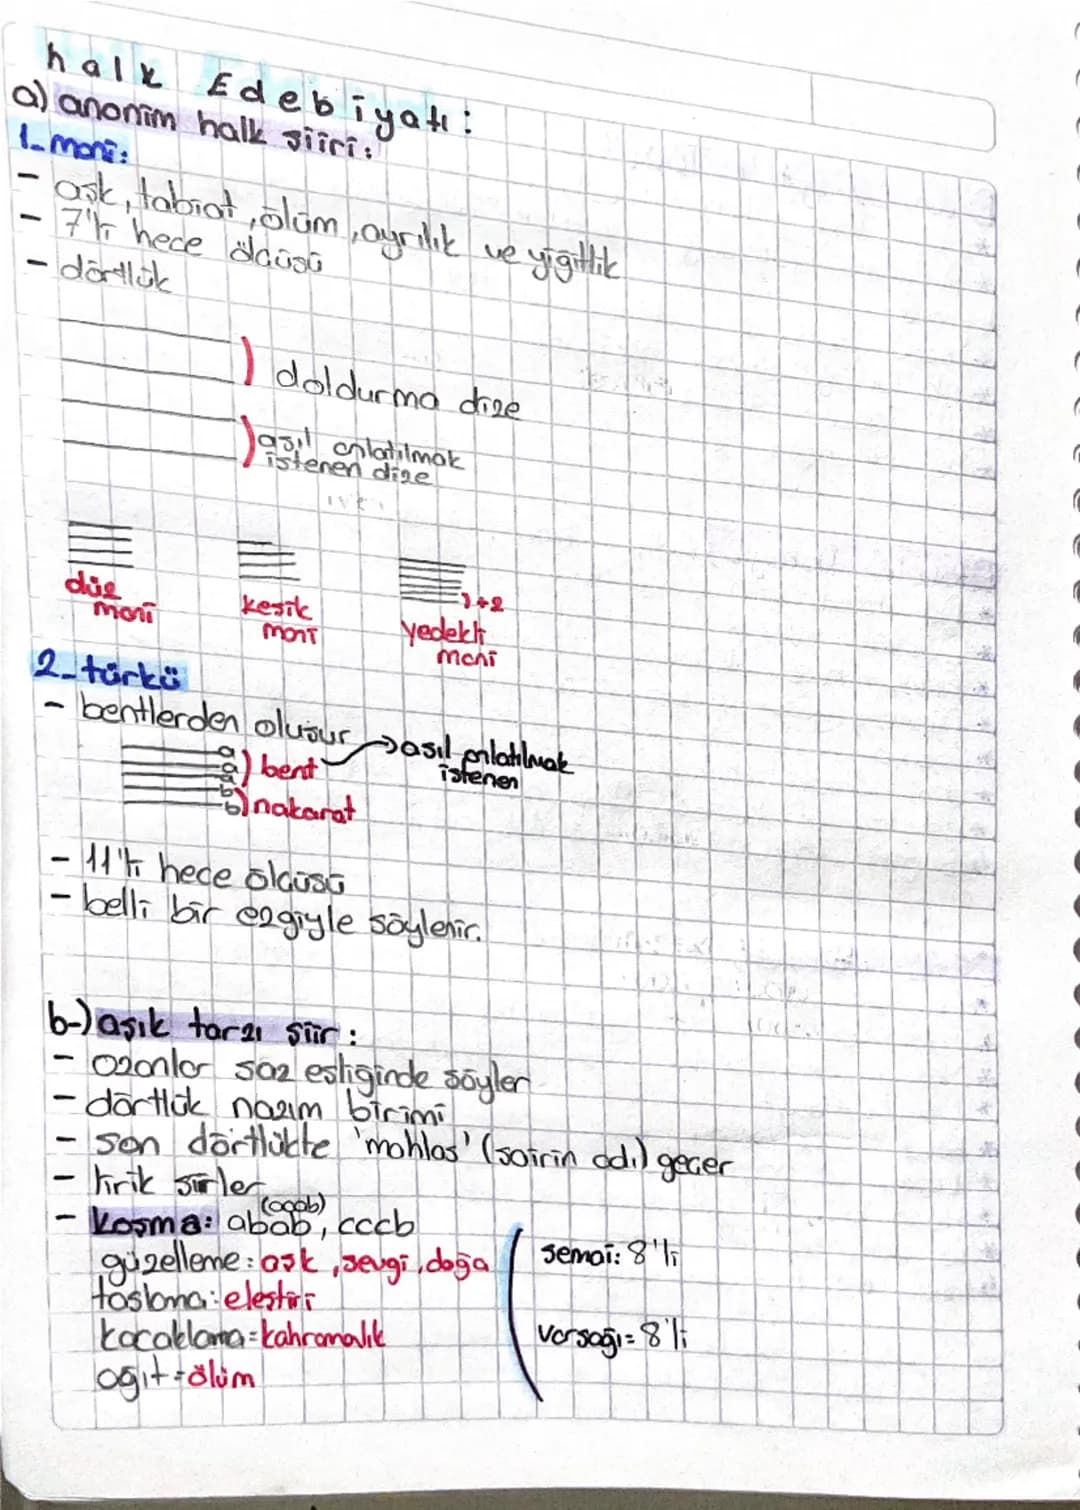 halk Edebiyatı:
a) anonim halk şiiri:
1- mani:
- aşk, tabiat, ölüm, ayrılık ve yiğitlik
- 7'li hece ölçüsü
- dörtlük
doldurma dize
asıl anlatılmak
istenen dize
düz
mani
kesik
mani
+2
yedekli
mani
2- türkü
- bentlerden oluşur → asıl anlatılmak
istenen
a
a
a
) bent
b
b
) nakarat
- 11'li hece ölçüsü
- belli bir ezgiyle söylenir.
b-) aşık tarzı şiir:
- ozanlar saz eşliğinde söyler
- dörtlük nazım birimi
- son dörtlükte 'mahlas' (şairin adı) geçer
- lirik şiirler
(aaab)
- koşma: abab, cccb
güzelleme: aşk, sevgi, doğa
taşlama: eleştiri
koçaklama = kahramalık
ağıt = ölüm
semai: 8'li
varsağı = 8'li